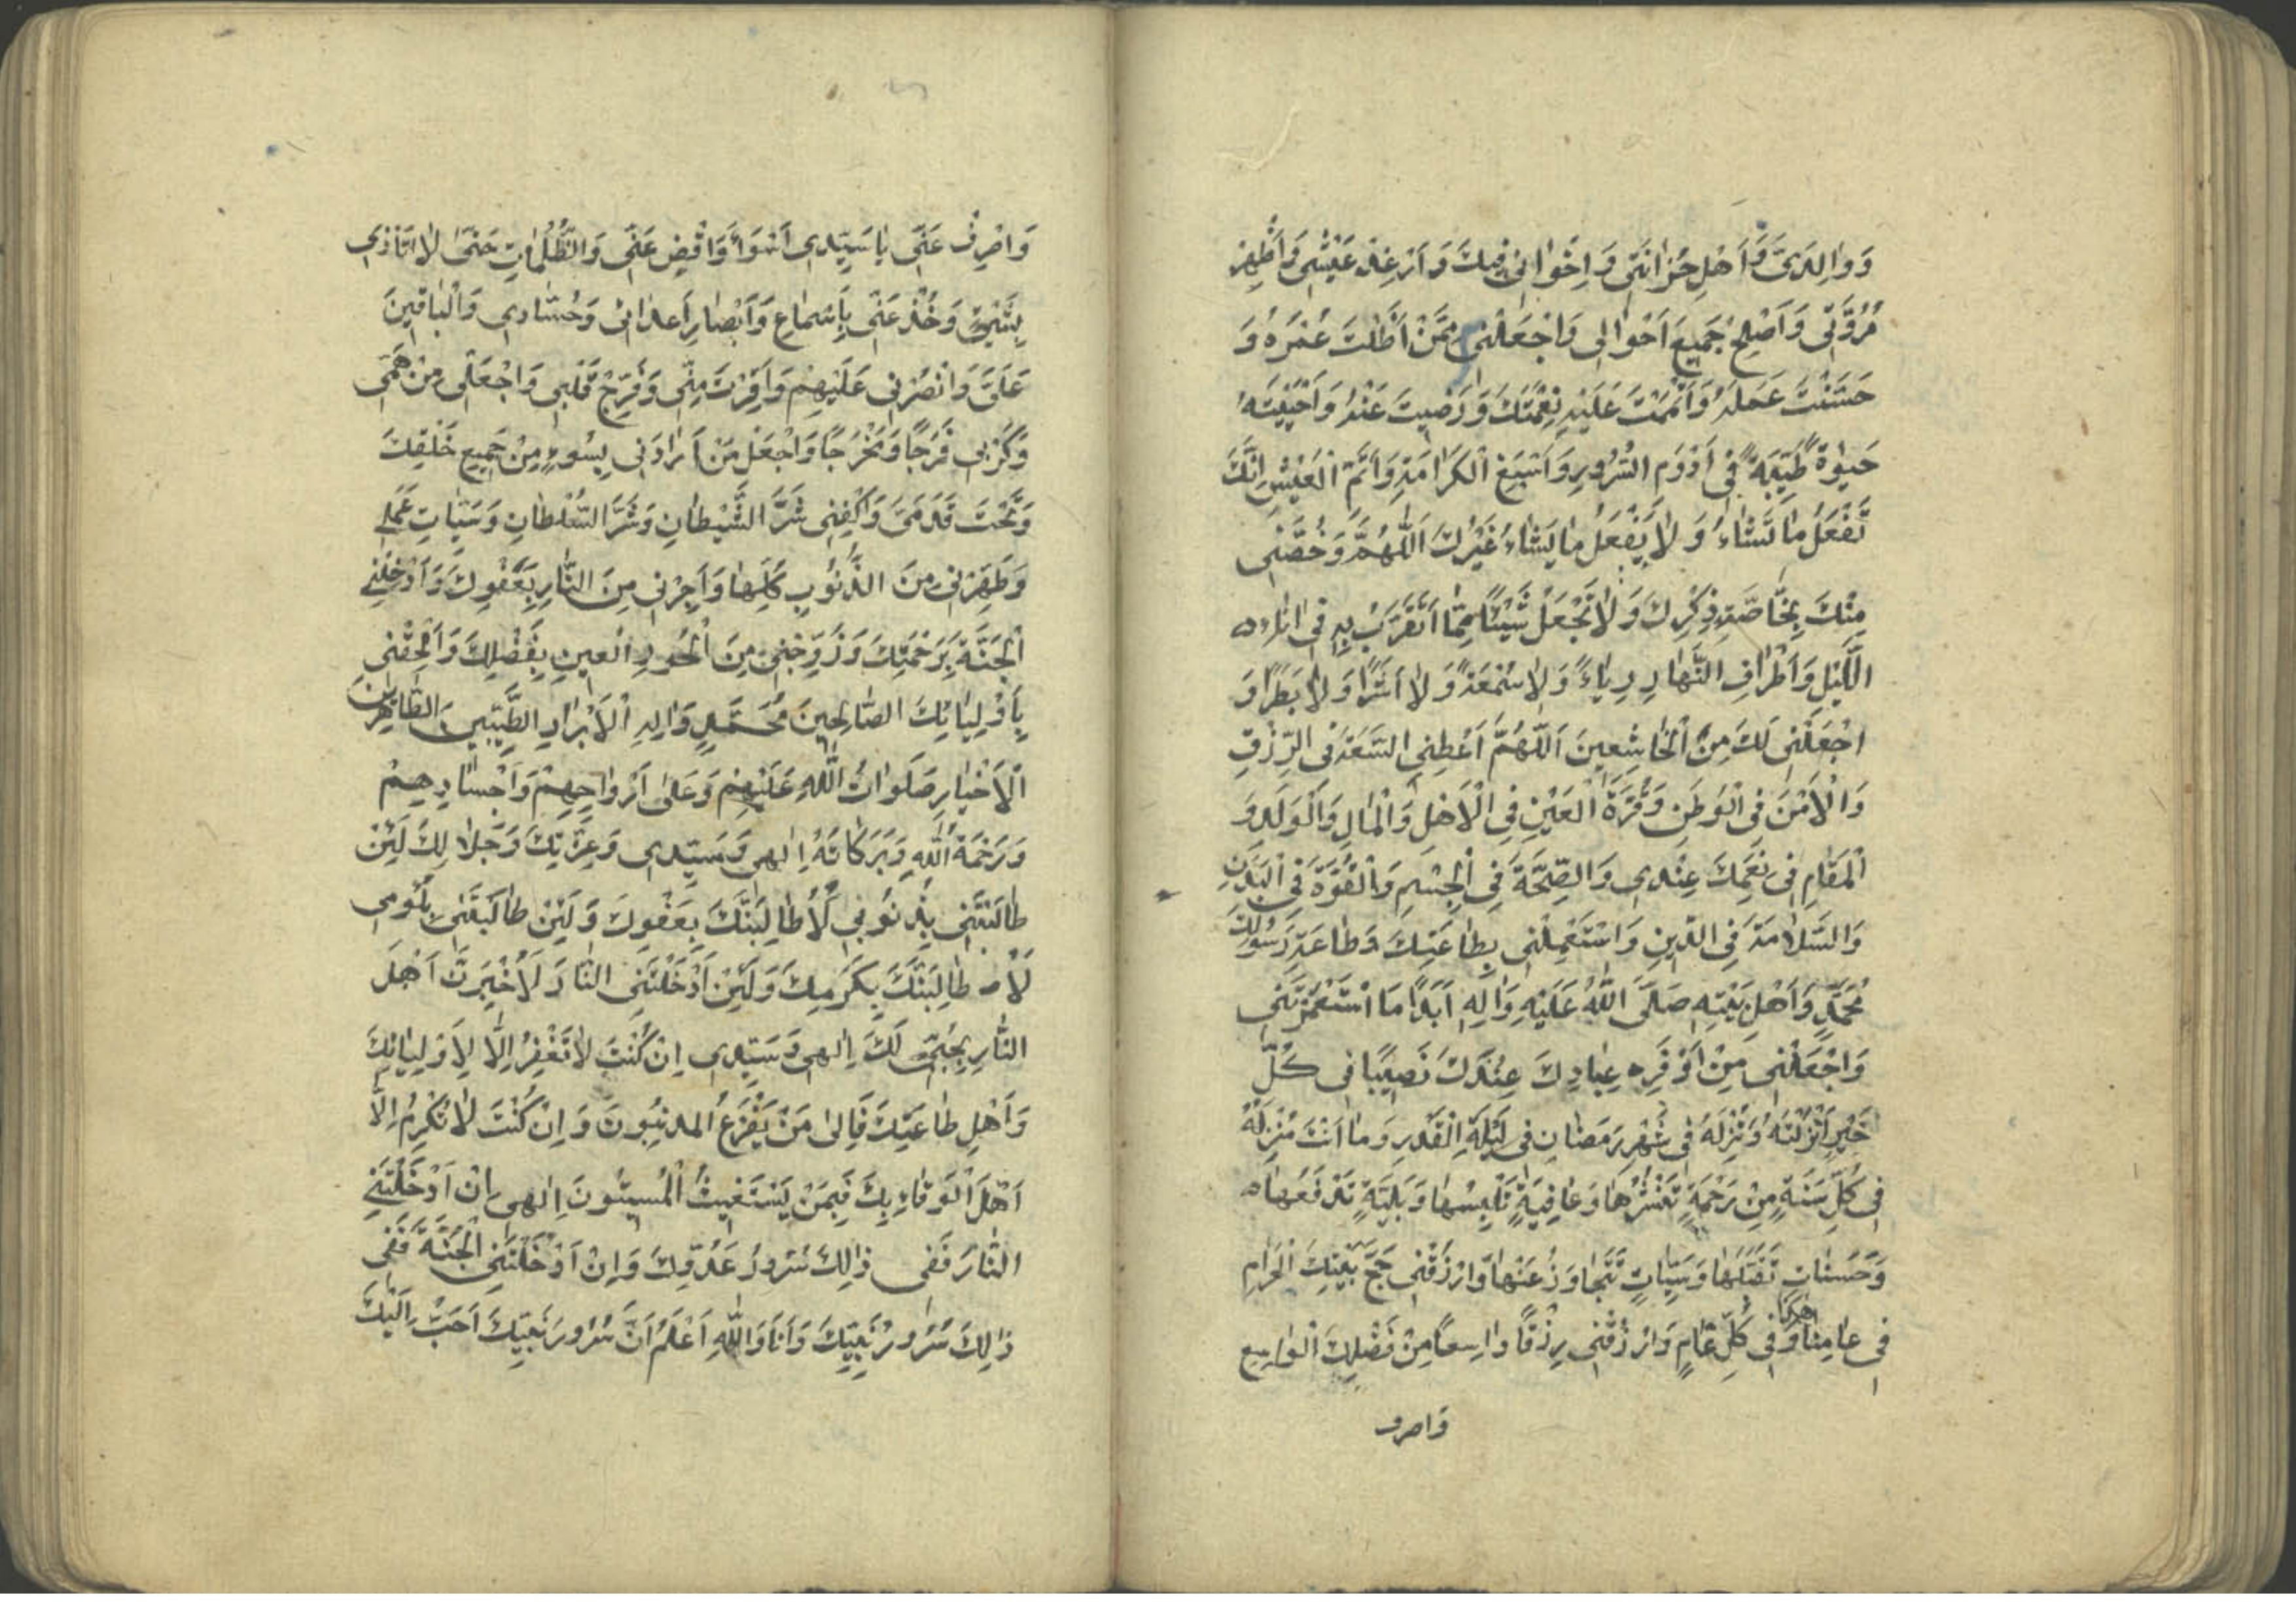 وَوٰالِدَىَّ وَاَهْلِ حُزٰانَتى وَاِخْوٰانى فيكَ وَاَرْغِدْ عَيْشى وَاَظْهِرْ
مُرُوَّتى وَاَصْلِحْ جَميعَ اَحْوٰالى وَاجْعَلْنى مِمَّنْ اَطَلْتَ عُمْرَهُ وَ
حَسَّنْتَ عَمَلَهُ وَاَتْمَمْتَ عَلَيْهِ نِعْمَتَكَ وَرَضيتَ عَنْهُ وَاَحْيَيْتَهُ
حَيٰوةً طَيِّبَةً فى اَدْوَمِ السُّرُورِ وَاَسْبَغِ الْكَرٰامَةِ وَاَتَمِّ الْعَيْشِ اِنَّكَ
تَفْعَلُ مٰا تَشٰاءُ وَلٰا يَفْعَلُ مٰا يَشٰاءُ غَيْرُكَ اَللّٰهُمَّ وَخُصَّنى
مِنْكَ بِخٰاصَّةِ ذِكْرِكَ وَلٰا تَجْعَلْ شَيْئًا مِمّٰا اَتَقَرَّبُ بِهِ فى اٰنٰاءِ
اللَّيْلِ وَاَطْرٰافِ النَّهٰارِ رِيٰاءً وَلٰا سُمْعَةً وَلٰا اَشَرًا وَلٰا بَطَرًا وَ
اجْعَلْنى لَكَ مِنَ الْخٰاشِعينَ اَللّٰهُمَّ اَعْطِنى السَّعَةَ فى الرِّزْقِ
وَالْاَمْنَ فِى الْوَطَنِ وَقُرَّةَ الْعَيْنِ فِى الْاَهْلِ وَالْمٰالِ وَالْوَلَدِ وَ
الْمَقٰامِ فى نِعَمِكَ عِنْدى وَالصِّحَّةَ فِى الْجِسْمِ وَالْقُوَّةَ فِى الْبَدَنِ
وَالسَّلٰامَةَ فِى الدّينِ وَاسْتَعْمِلْنى بِطٰاعَتِكَ وَطٰاعَةِ رَسُولِكَ
مُحَمَّدٍ وَاَهْلِ بَيْتِهِ صَلَّى اللّٰهُ عَلَيْهِ وَاٰلِهِ اَبَدًا مَا اسْتَعْمَرْتَنى
وَاجْعَلْنى مِنْ اَوْفَرِ عِبٰادِكَ عِنْدَكَ نَصيبًا فى كُلِّ
خَيْرٍ اَنْزَلْتَهُ وَتُنْزِلُهُ فى شَهْرِ رَمَضٰانِ فى لَيْلَةِ الْقَدْرِ وَمٰا اَنْتَ مُنْزِلُهُ
فى كُلِّ سَنَةٍ مِنْ رَحْمَةٍ تَنْشُرُهٰا وَعٰافِيَةٍ تُلْبِسُهٰا وَبَلِيَّةٍ تَدْفَعُهٰا
وَحَسَنٰاتٍ تَقَبَّلُهٰا وَسَيِّئٰاتٍ تَتَجٰاوَزُ عَنْهٰا وَارْزُقْنى حَجَّ بَيْتِكَ الْحَرٰامِ
فى عٰامِنٰا هٰذٰا وَفى كُلِّ عٰامٍ وَارْزُقْنى رِزْقًا وٰاسِعًا مِنْ فَضْلِكَ الْوٰاسِعِ
وَاصرف
وَاصْرِفْ عَنّى يٰا سَيِّدى اَسْوَأَ وَاقْضِ عَنّى وَالظُّلُمٰاتِ حَتّىٰ لٰا اَتَاَذّى
بِشَيْئٍ وَخُذْ عَنّى بِاَسْمٰاعِ وَاَبْصٰارِ اَعدٰائى وَحُسّٰادى وَالْبٰاقينَ
عَلَىَّ وَانْصُرْنى عَلَيْهِمْ وَاَقِرَّ مِنّى وَفَرِّجْ قَلْبى وَاجْعَلْ لى مِنْ هَمّى
وَكَرْبى فَرَجًا وَمَخْرَجًا وَاجْعَلْ مَنْ اَرٰادَنى بِسُوءٍ مِنْ جَميعِ خَلْقِكَ
وَتَحْتَ قَدَمَىَّ وَاكْفِنى شَرَّ الشَّيْطٰانِ وَشَرَّ السُّلْطٰانِ وَسَيِّاٰتِ عَمَلى
وَطَهِّرْنى مِنَ الذُّنُوبِ كُلِّهٰا وَاَجِرْنى مِنَ النّٰارِ بِعَفْوِكَ وَاَدْخِلْنى
الْجَنَّةَ بِرَحْمَتِكَ وَزَوِّجْنى مِنَ الْحُورِ الْعينِ بِفَضْلِكَ وَاَلْحِقْنى
بِاَوْلِيٰائِكَ الصّٰالِحينَ مُحَمَّدٍ وَاٰلِهِ الْاَبْرٰارِ الطَّيِّبينَ الطّٰاهِرينَ
الْاَخْيٰارِ صَلَوٰاتُ اللّٰهِ عَلَيْهِمْ وَعَلىٰ اَرْوٰاحِهِمْ وَاَجْسٰادِهِمْ
وَرَحْمَةُ اللّٰهِ وَبَرَكٰاتُهُ اِلٰهى وَسَيِّدى وَعِزَّتِكَ وَجَلٰالِكَ لَئِنْ
طٰالَبْتَنى بِذُنُوبى لَاُطٰالِبَنَّكَ بِعَفْوِكَ وَلَئِنْ طٰالَبْتَنى بِلُؤْمى
لَاُطٰالِبَنَّكَ بِكَرَمِكَ وَلَئِنْ اَدْخَلْتَنِى النّٰارَ لَاُخْبِرَنَّ اَهْلَ
النّٰارِ بِحُبّى لَكَ اِلٰهى وَسَيِّدى اِنْ كُنْتَ لٰا تَغْفِرُ اِلّٰا لِاَوْلِيٰائِكَ
وَاَهْلِ طٰاعَتِكَ فَاِلىٰ مَنْ يَفْزَعُ المذنِبُونَ وَاِنْ كُنْتَ لٰا تُكْرِمُ اِلّٰا
اَهْلَ الْوَفٰاءِ بِكَ فَبِمَنْ يَسْتَغيثُ الْمُسيئُونَ اِلٰهى اِنْ اَدْخَلْتَنِى
النّٰارَ فَفى ذٰلِكَ سُرُورُ عَدُوِّكَ وَاِنْ اَدْخَلْتَنِى الْجَنَّةَ فَفى
ذٰلِكَ سُرُورُ نَبِيِّكَ وَاَنَا وَاللّٰهِ اَعْلَمُ اَنَّ سُرُورَ نَبِيِّكَ اَحَبُّ اِلَيْكَ